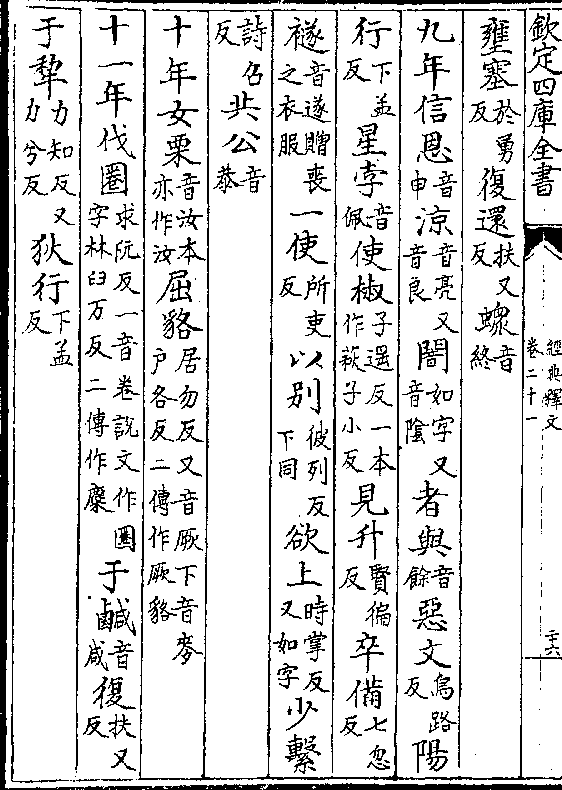 欽定四庫全書
經典釋文
卷二十一
二十六
壅塞於勇反復還扶又反音終
九年信恩音申涼音亮又音良闇如字又音陰者與音餘惡文烏路反陽
行下孟反星孛音佩使椒子遥反一本作萩子小反見升賢徧反卒備七忽反
襚音遂贈喪之衣服一使所吏反以别彼列反下同欲上時掌反又如字少繫
詩召反共公音恭
十年女栗音汝本亦作汝屈貉居勿反又音厥下音麥户各反二傳作厥貉
十一年伐圈求阮反一音卷說文作圏字林臼万反二傳作麇于鹹音咸復扶又反
于犂力知反又力兮反狄行下孟反